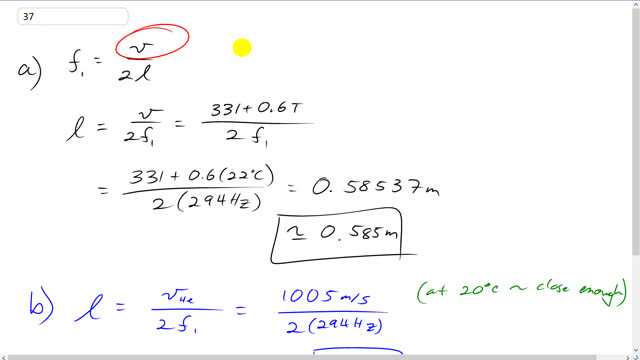 37
a) f₁ = v / 2l
l = v / 2f₁ = 331 + 0.6T / 2 f₁
= 331 + 0.6(22°C) / 2(294Hz) = 0.58537m
≃ 0.585m
b) l = v_He / 2f₁ = 1005 m/s / 2(294Hz) (at 20°C ~ close enough)